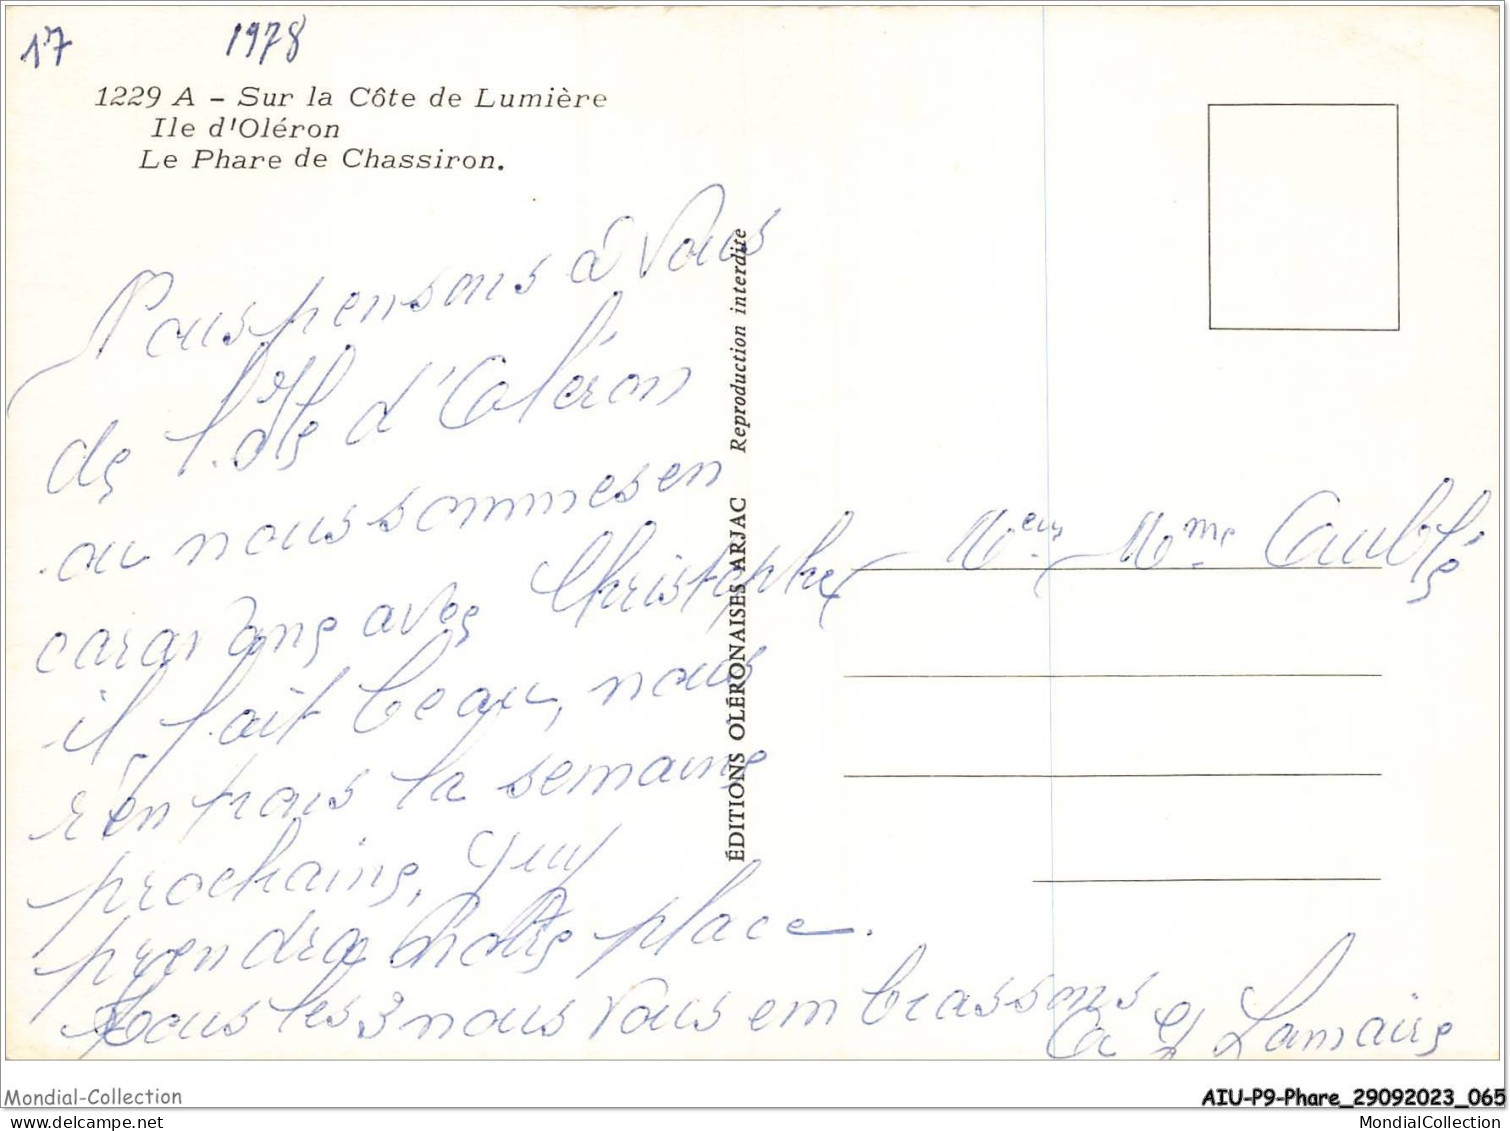 17 1978
1229 A – Sur la Côte de Lumière
Ile d'Oléron
Le Phare de Chassiron.
Nous pensons à vous
de l'Ile d'Oléron
ou nous sommes en
caravane avec Christophe
il fait beau, nous
rentrons la semaine
prochaine, Guy
prendra notre place.
tous les 3 nous vous embrassons
Lamaire
ÉDITIONS OLÉRONAISES ARJAC Reproduction interdite
Meur Mme
Mondial-Collection
AIU-P9-Phare_29092023_065
MondialCollection
MondialCollection